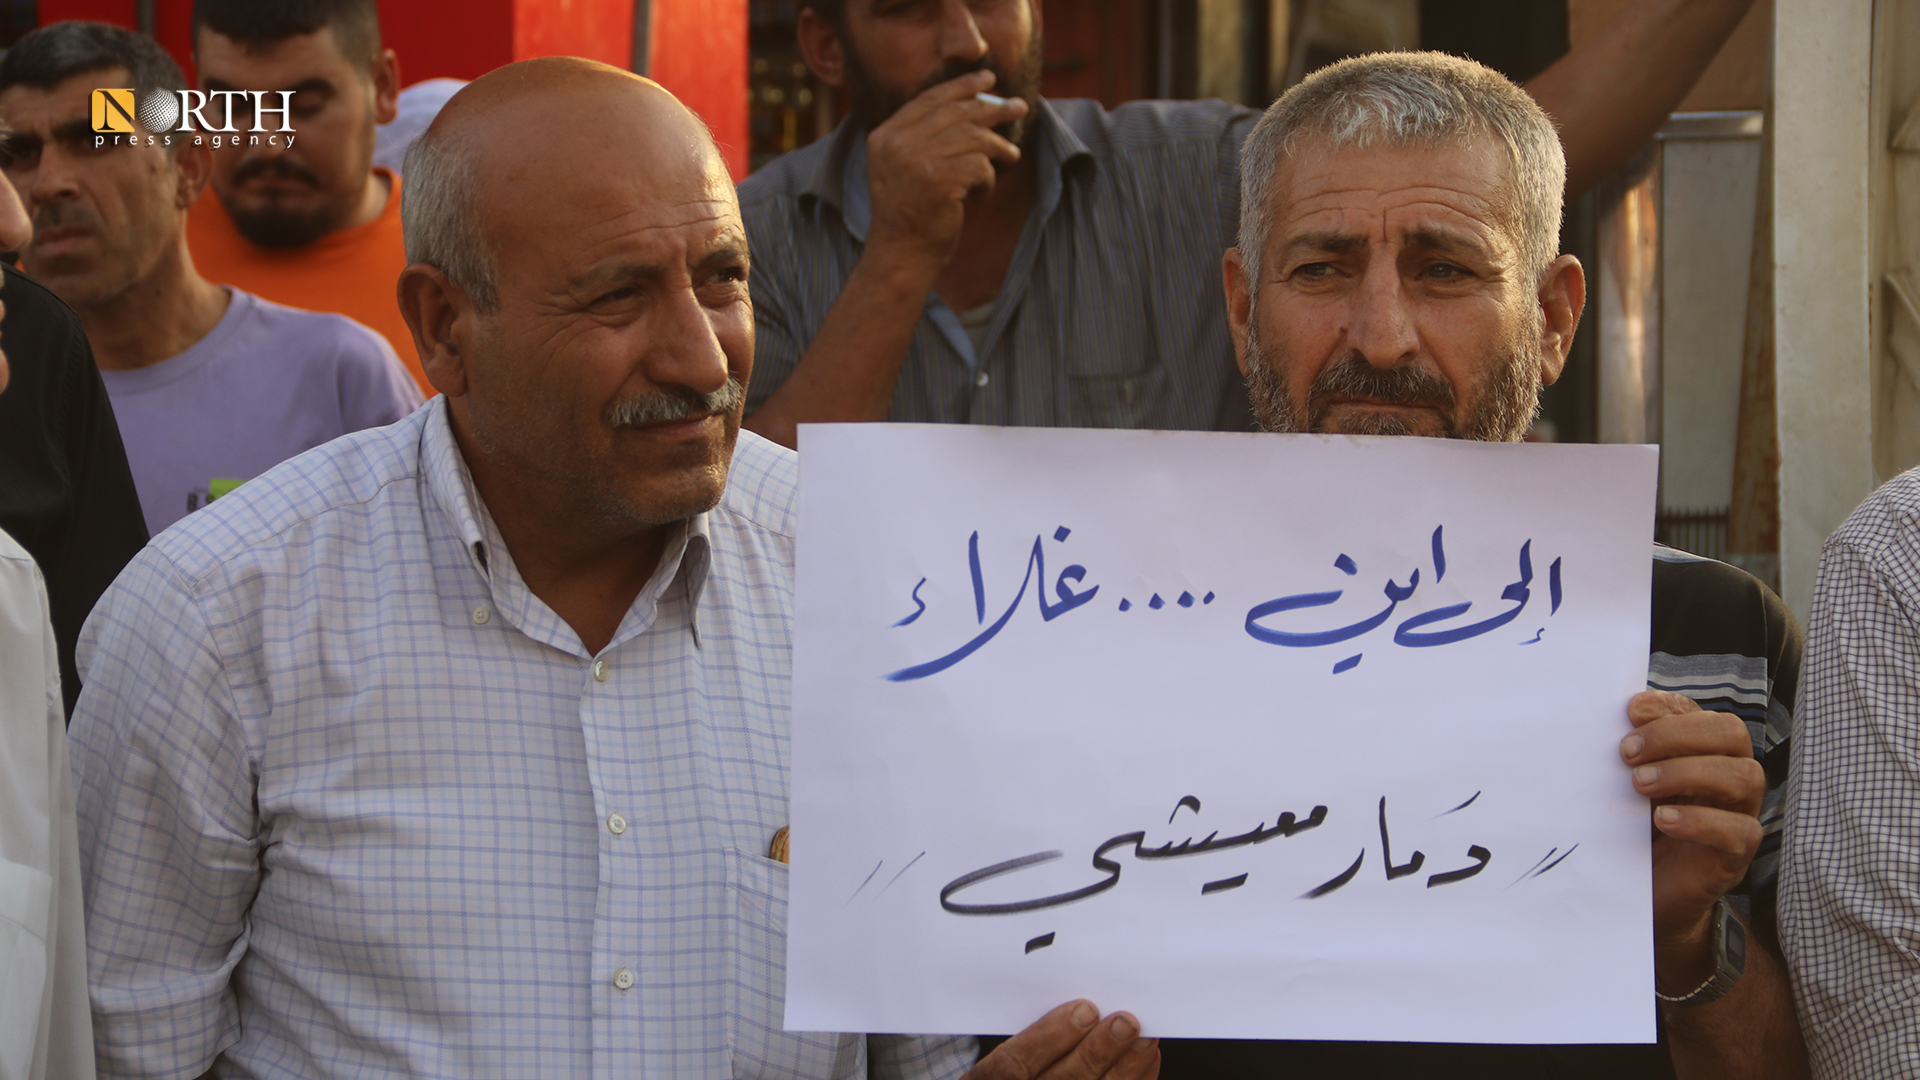 NORTH
press agency
إلى اين .... غلاء
// دَمار معيشي //